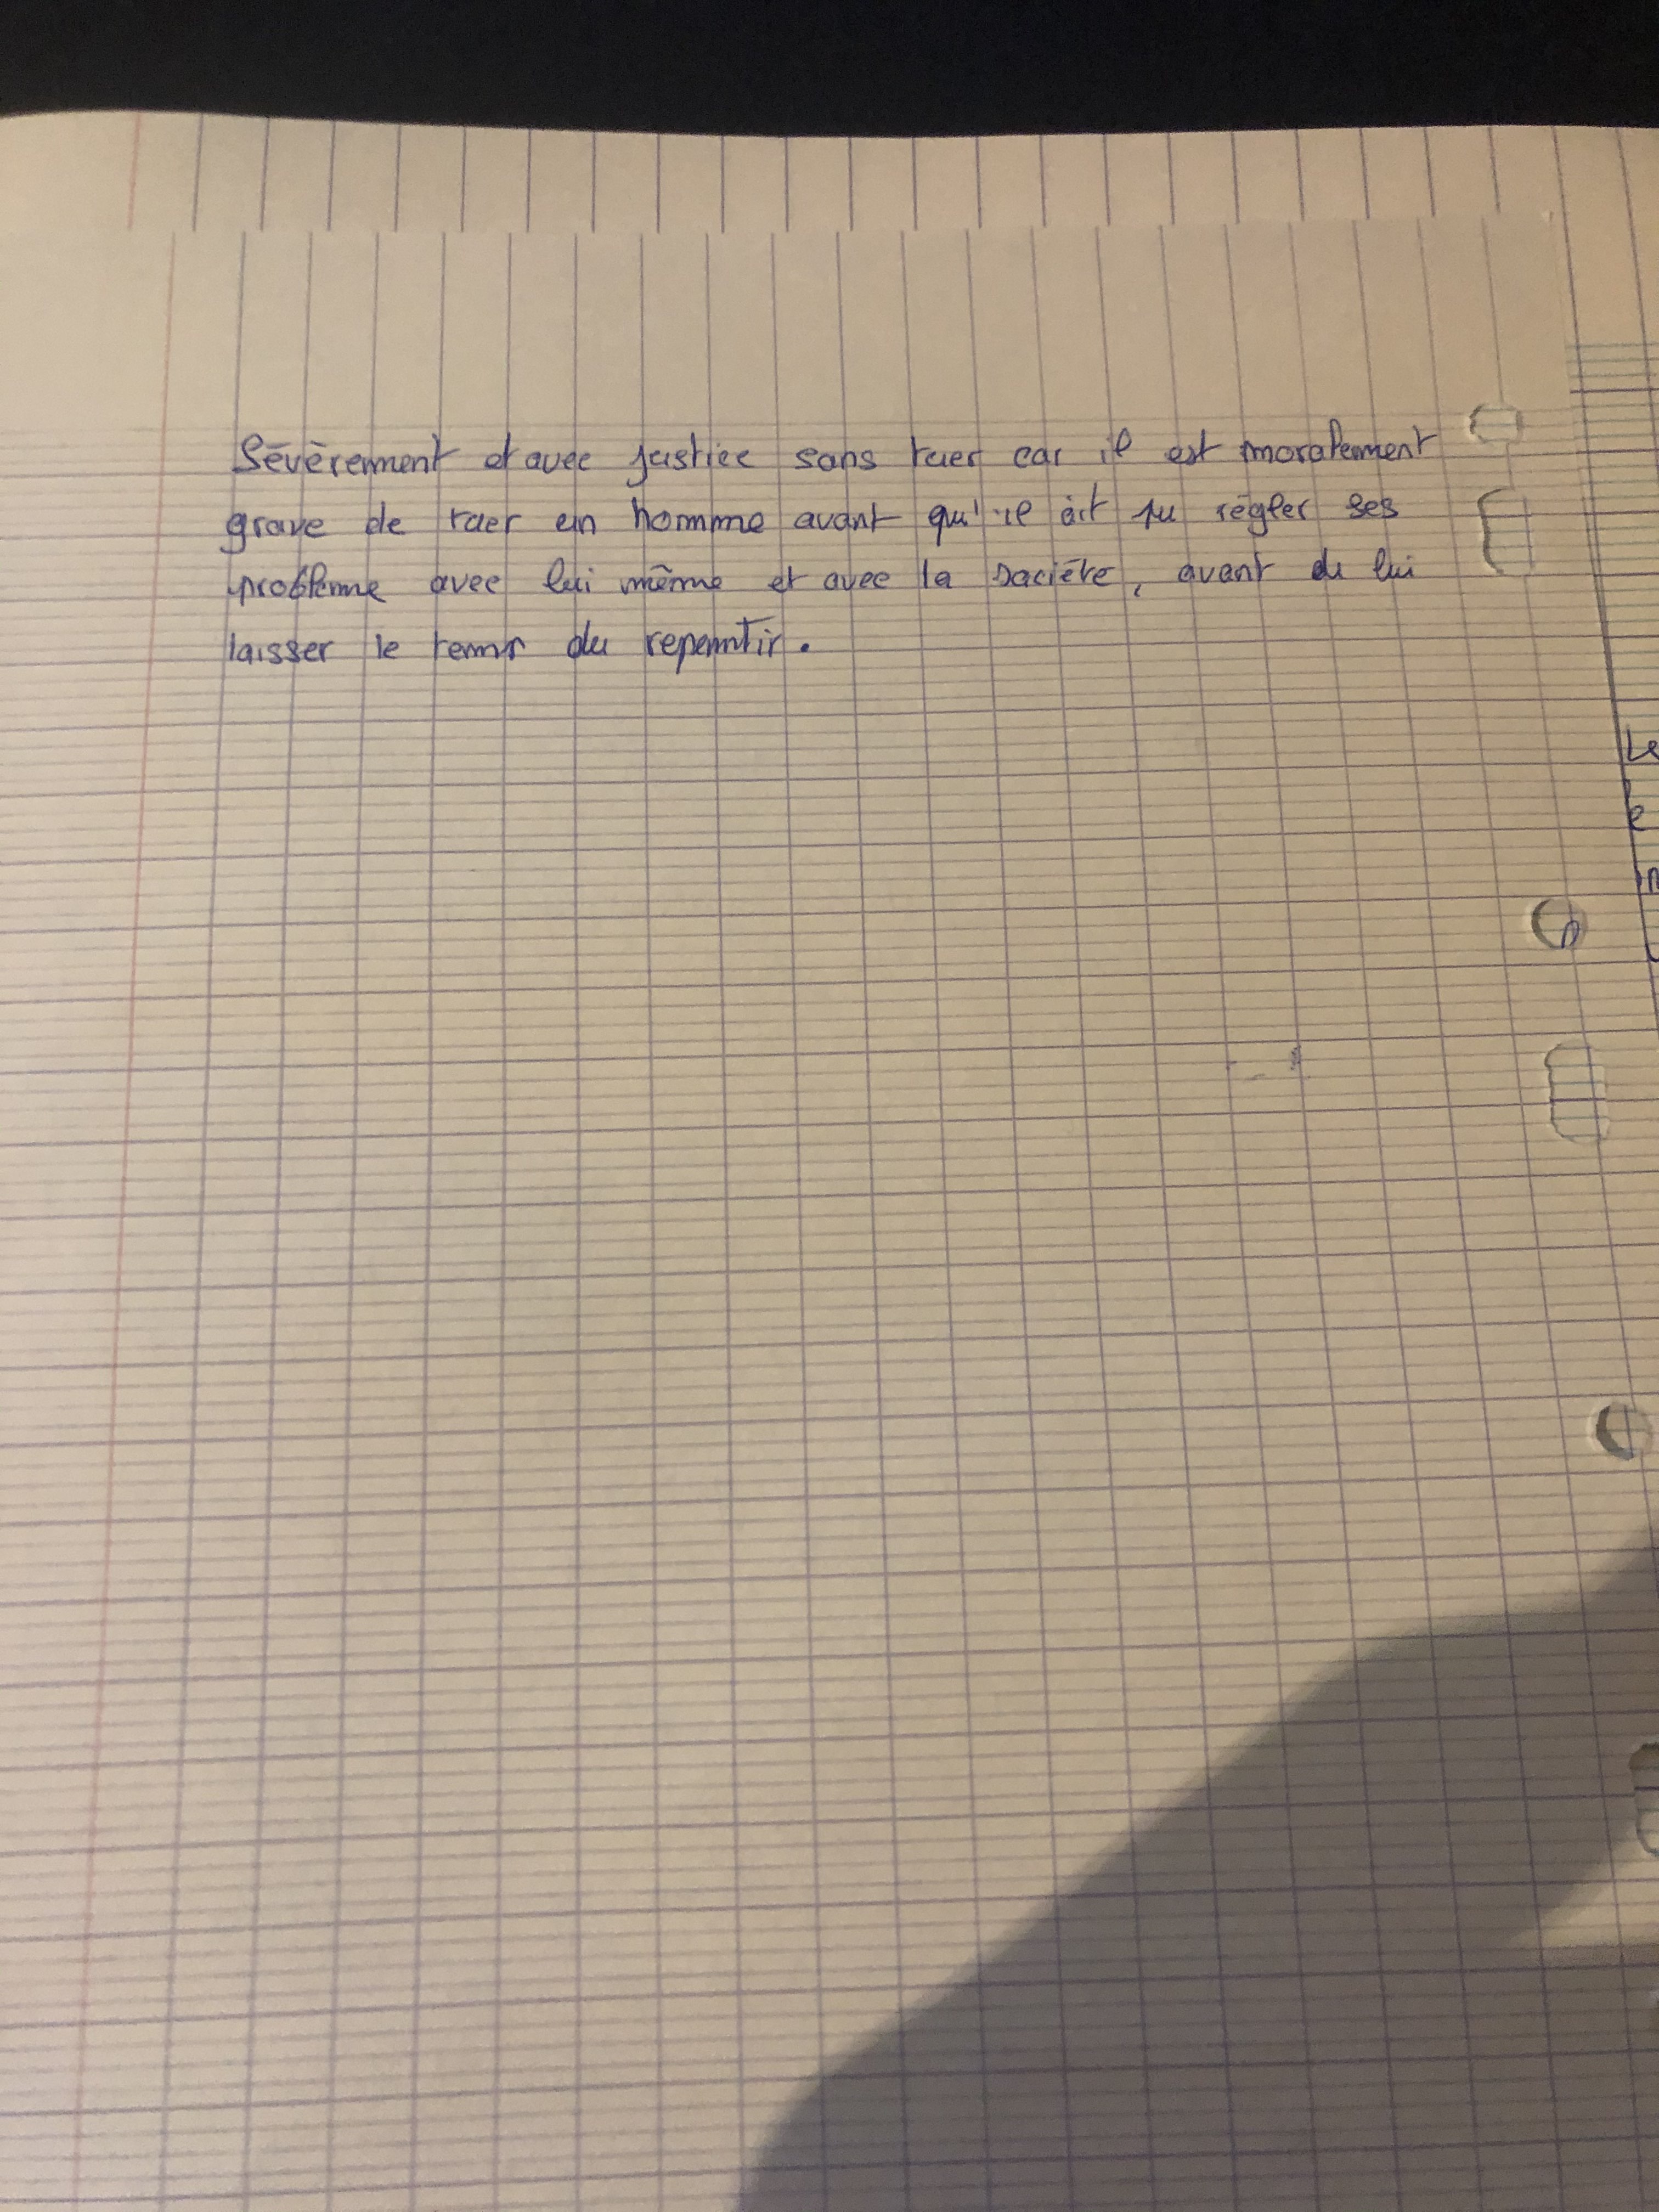 Sévèrement et avec justice sans tuer car il est moralement
grave de tuer un homme avant qu'il ait pu régler ses
problème avec lui même et avec la société, avant de lui
laisser le temps du repentir.
Le
e